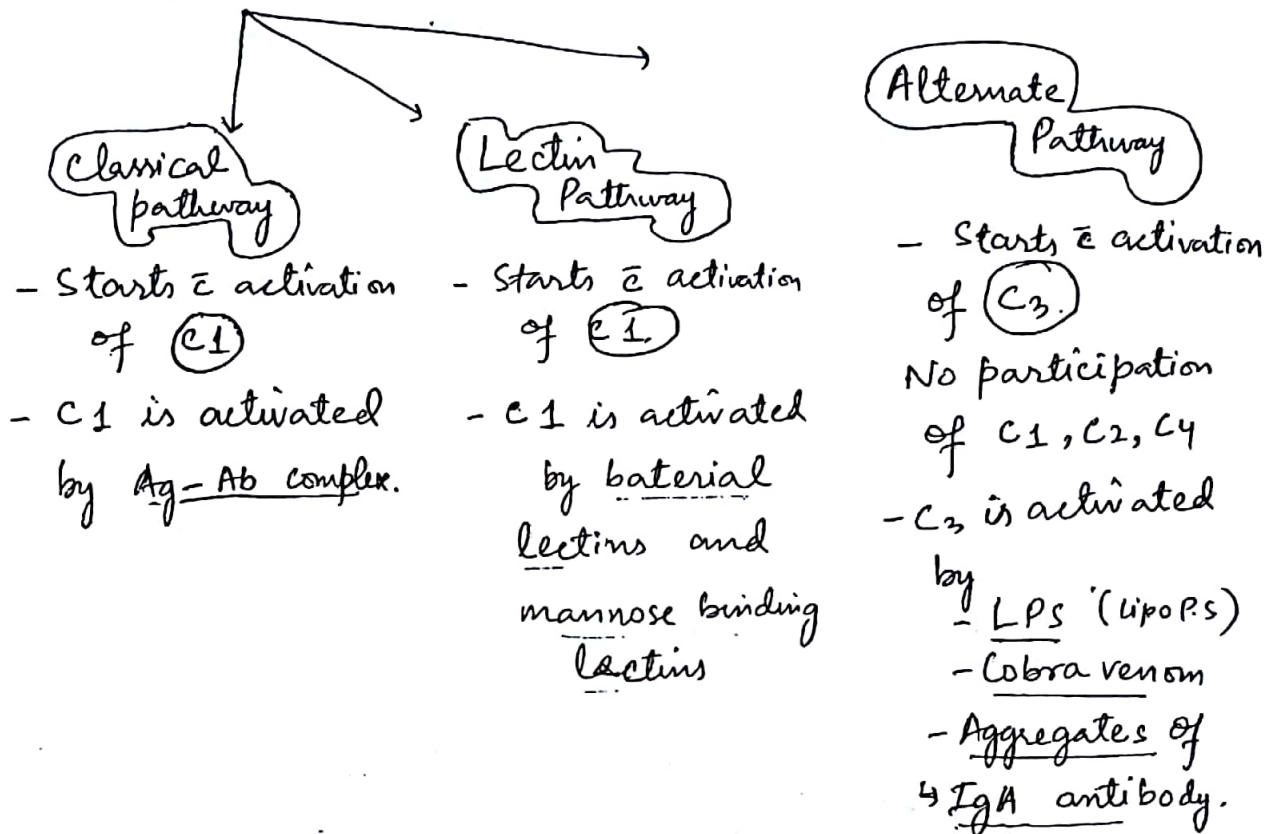 Classical
pathway
- Starts c̄ activation
of C1
- C1 is activated
by Ag-Ab complex.
Lectin
Pathway
- Starts c̄ activation
of C1
- C1 is activated
by baterial
lectins and
mannose binding
lectins
Alternate
Pathway
- Starts c̄ activation
of C3.
No participation
of C1, C2, C4
- C3 is activated
by
- LPS (Lipo P.S)
- Cobra venom
- Aggregates of
↳ IgA antibody.